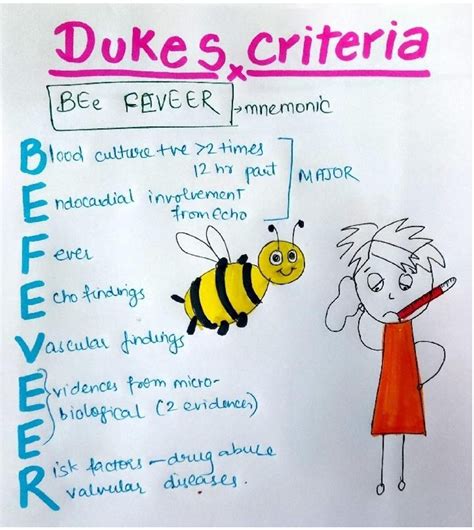 Dukes criteria
BEe FEVEER → mnemonic
Blood culture +ve >2 times
12 hr part
MAJOR
Endocardial involvement
from echo
Fever
Echo findings
Vascular findings
Evidences from micro-
biological (2 evidences)
Risk factors – drug abuse
valvular diseases.